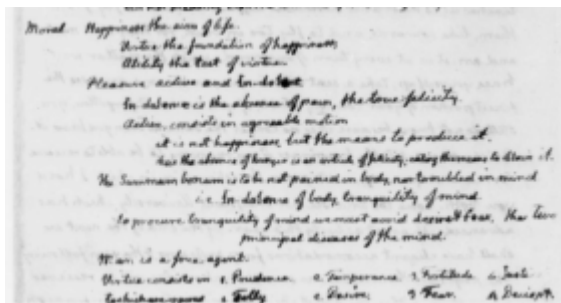 Moral. Happiness the aim of life.
Virtue the foundation of happiness,
Utility the test of virtue.
Pleasure active and In-do-lent.
In-dolence is the absence of pain, the true felicity.
Active, consists in agreeable motion
it is not happiness, but the means to produce it.
the absence of hunger is an article of felicity, eating the means to obtain it.
The Summum bonum is to be not pained in body, nor troubled in mind
i.e. In-dolence of body, tranquility of mind
to procure tranquility of mind we must avoid desire & fear, the two
principal diseases of the mind.
Man is a free agent.
Virtue consists in 1. Prudence 2. Temperance 3. Fortitude 4. Justice
1. Folly 2. Desire 3. Fear 4. Deceipt